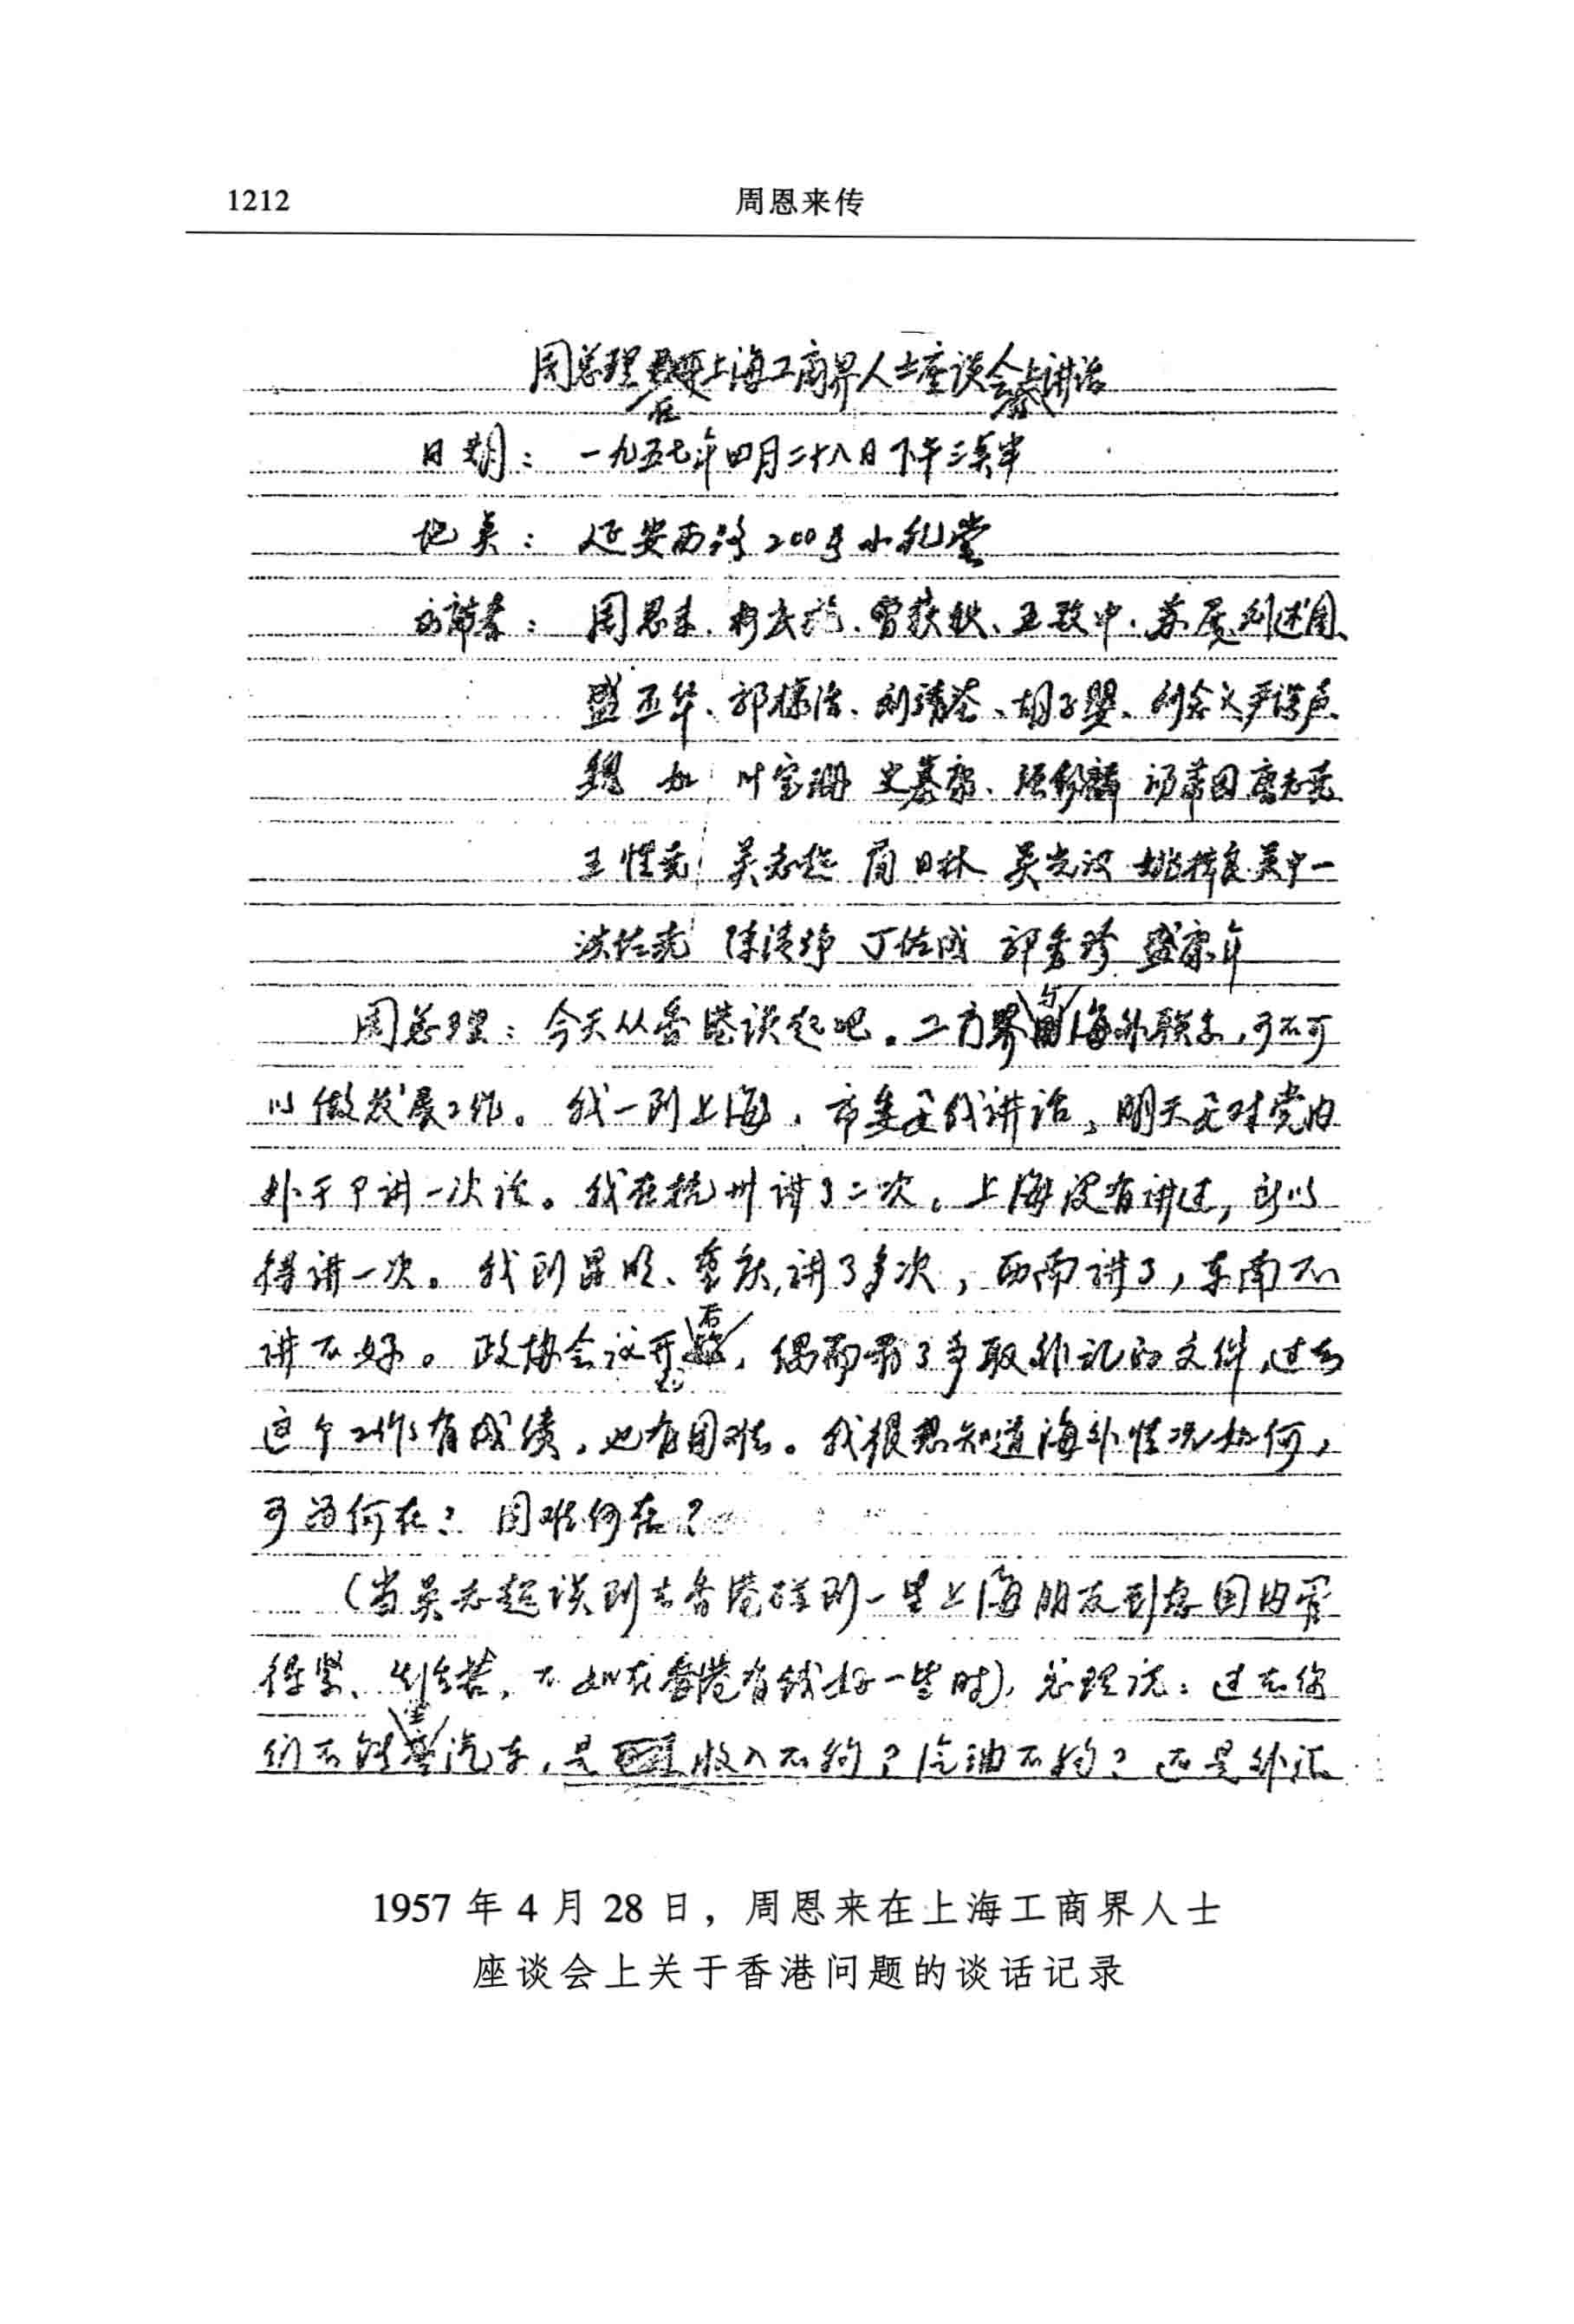 1212
周恩来传
周总理在上海工商界人士座谈会上讲话
日期：一九五七年四月二十八日下午三点半
地点：延安西路200号小礼堂
出席者：周恩来、柯武、曾荻秋、王致中、苏展、刘述周、
盛丕华、郭棣活、刘靖基、胡子婴、刘念义、严谔声、
魏如、叶宝珊、史慕康、
王性尧 吴志超 简日林 吴光汉 姚 吴中一
洪佐尧 陈 丁佐成 郭秀珍 盛康年
周总理：今天从香港谈起吧。工商界与海外联系，可不可
以做发展工作。我一到上海，市委要我讲话，明天要对党内
外干部讲一次话。我在杭州讲了二次。上海没有讲过，所以
得讲一次。我到昆明、重庆，讲了多次，西南讲了，东南不
讲不好。政协会议开后，偶而看了争取外汇的文件，过去
这个工作有成绩，也有困难。我很想知道海外情况如何，
可为何在？困难何在？
（当吴志超谈到去香港碰到一些上海朋友 国内管
得紧、生活苦，不如在香港有钱好一些时），总理说：过去你
们不能坐汽车，是收入不够？汽油不够？还是外汇
1957 年 4 月 28 日，周恩来在上海工商界人士
座谈会上关于香港问题的谈话记录